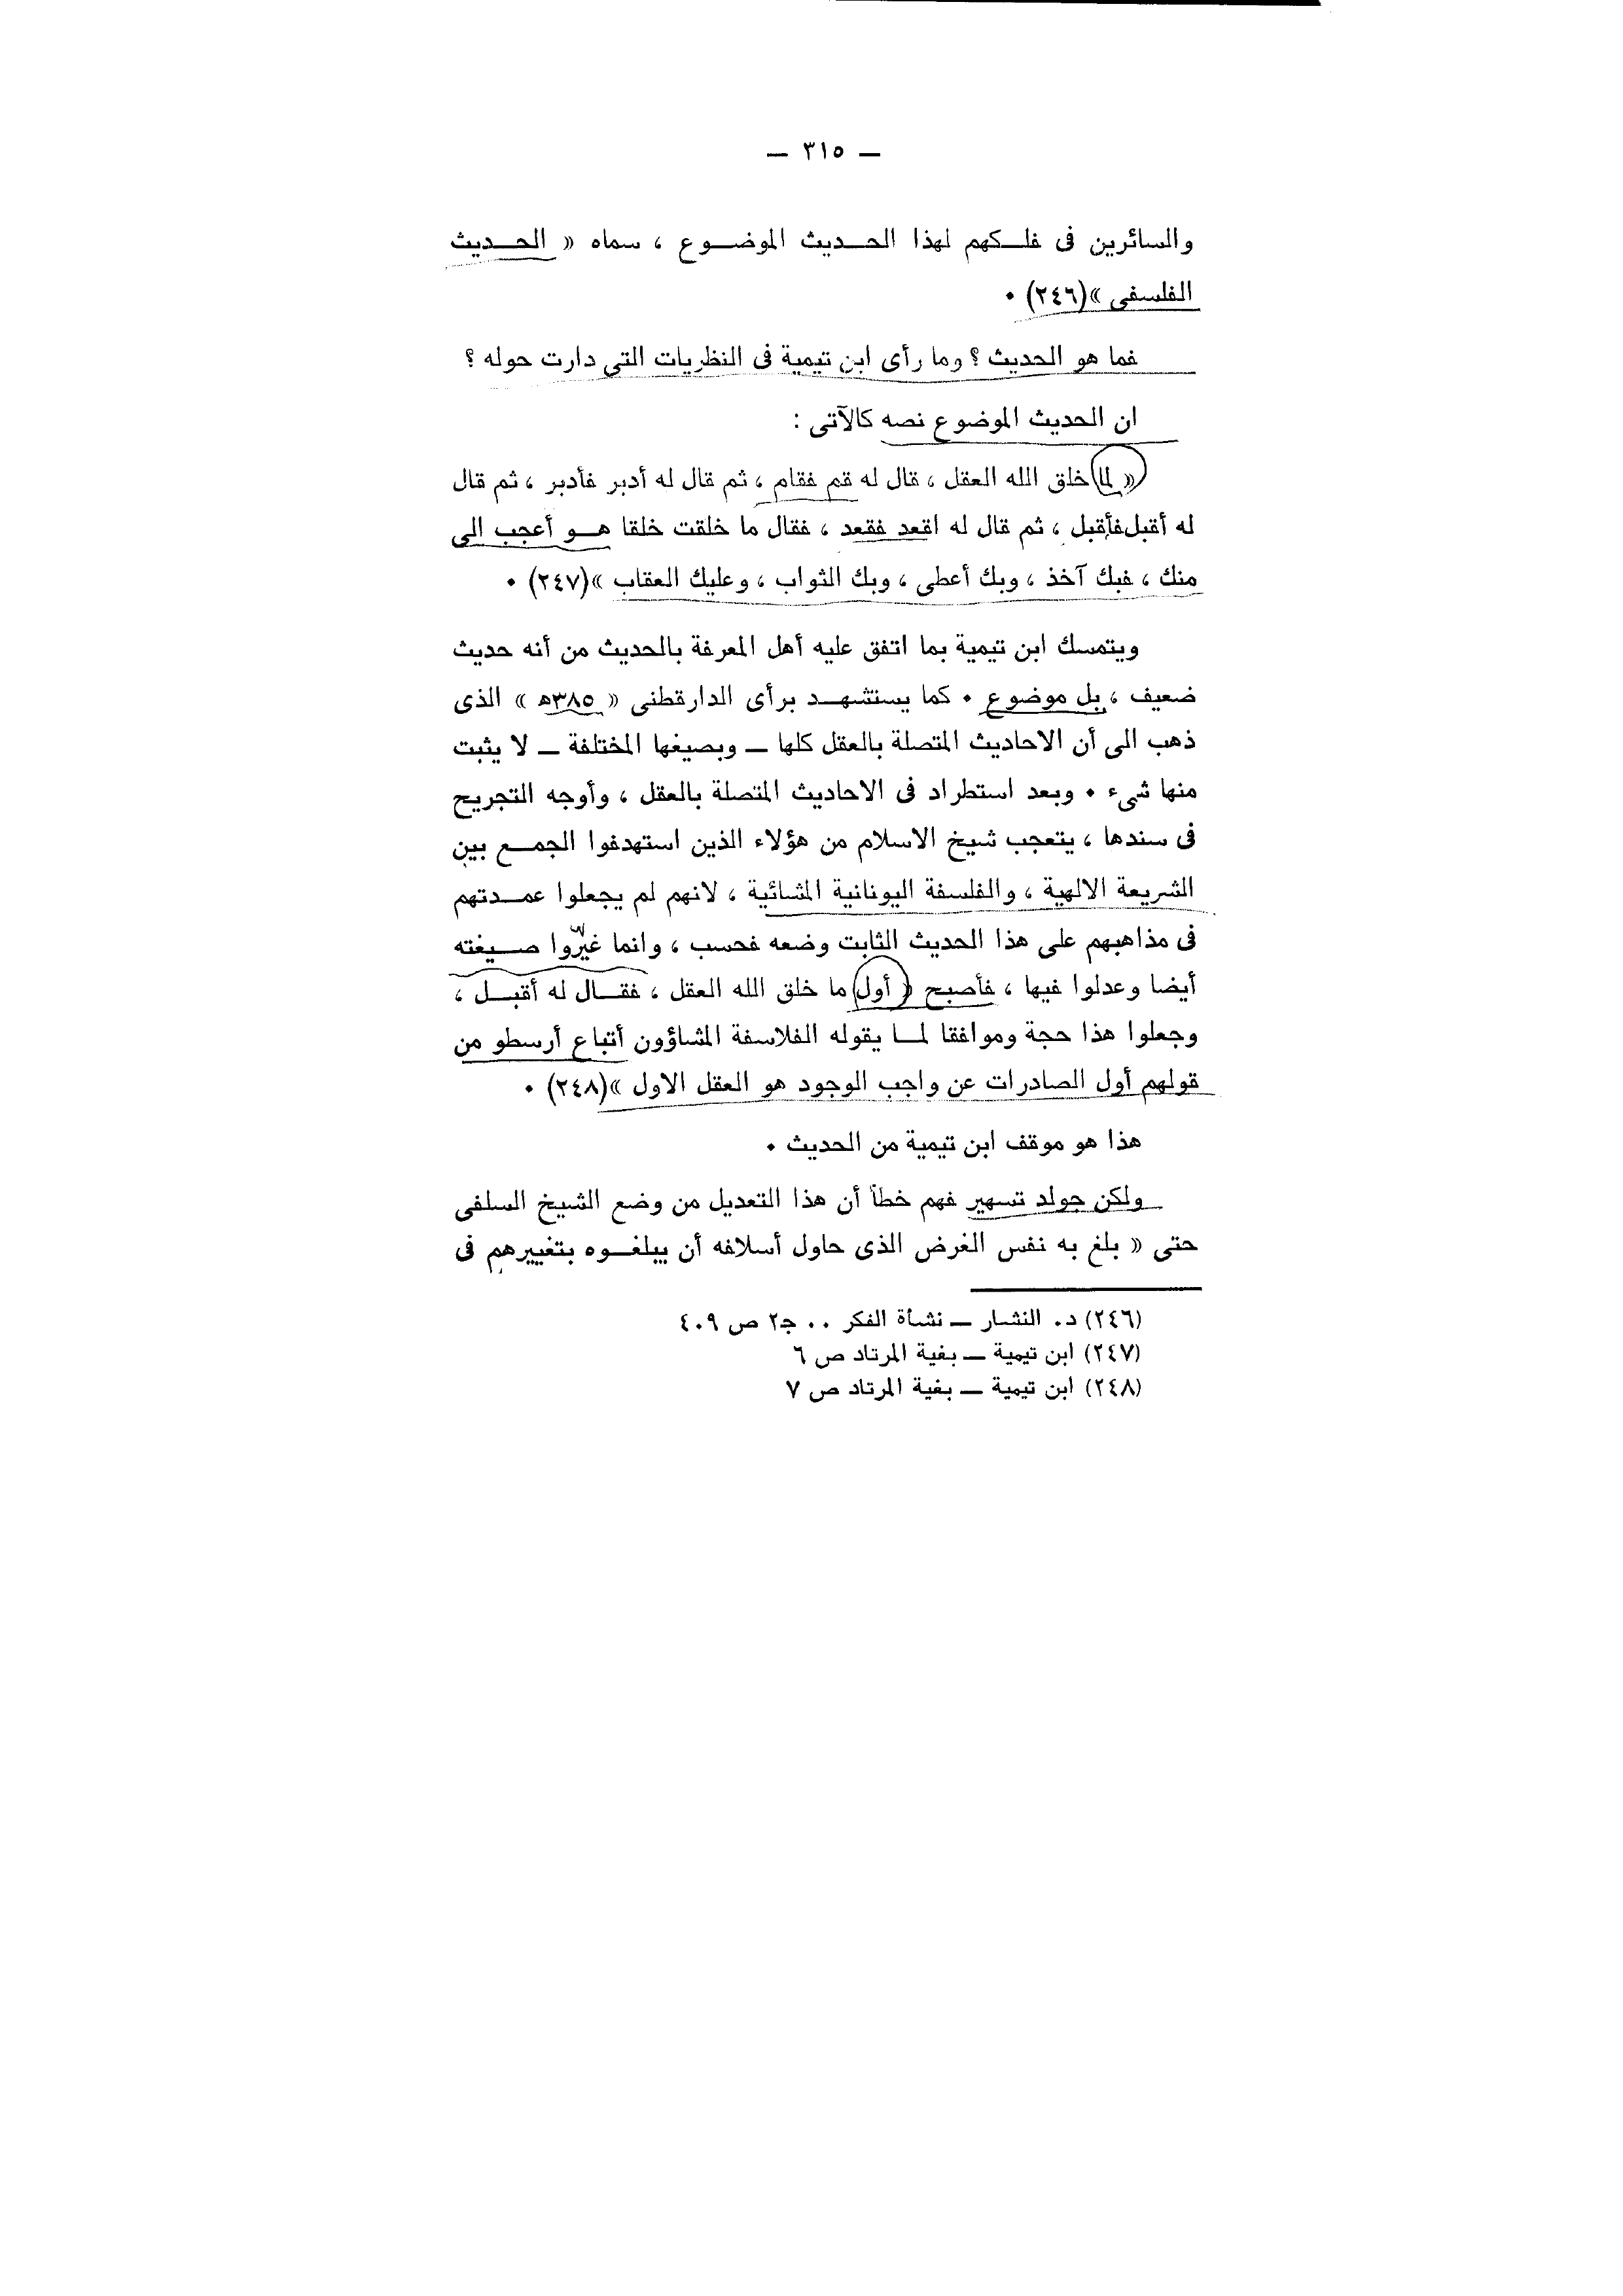 — ٣١٥ —
والسائرين فى فلكهم لهذا الحديث الموضوع ، سماه « الحديث
الفلسفى »(٢٤٦) ٠
فما هو الحديث ؟ وما رأى ابن تيمية فى النظريات التى دارت حوله ؟
ان الحديث الموضوع نصه كالآتى :
« لما خلق الله العقل ، قال له قم فقام ، ثم قال له أدبر فأدبر ، ثم قال
له أقبل فأقبل ، ثم قال له اقعد فقعد ، فقال ما خلقت خلقا هو أعجب الى
منك ، فبك آخذ ، وبك أعطى ، وبك الثواب ، وعليك العقاب »(٢٤٧) ٠
ويتمسك ابن تيمية بما اتفق عليه أهل المعرفة بالحديث من أنه حديث
ضعيف ، بل موضوع ٠ كما يستشهد برأى الدارقطنى « ٣٨٥ه » الذى
ذهب الى أن الاحاديث المتصلة بالعقل كلها — وبصيغها المختلفة — لا يثبت
منها شىء ٠ وبعد استطراد فى الاحاديث المتصلة بالعقل ، وأوجه التجريح
فى سندها ، يتعجب شيخ الاسلام من هؤلاء الذين استهدفوا الجمع بين
الشريعة الالهية ، والفلسفة اليونانية المشائية ، لانهم لم يجعلوا عمدتهم
فى مذاهبهم على هذا الحديث الثابت وضعه فحسب ، وانما غيّروا صيغته
أيضا وعدلوا فيها ، فأصبح « أول ما خلق الله العقل ، فقال له أقبل ،
وجعلوا هذا حجة وموافقا لما يقوله الفلاسفة المشاؤون أتباع أرسطو من
قولهم أول الصادرات عن واجب الوجود هو العقل الاول »(٢٤٨) ٠
هذا هو موقف ابن تيمية من الحديث ٠
ولكن جولد تسهير فهم خطأ أن هذا التعديل من وضع الشيخ السلفى
حتى « بلغ به نفس الغرض الذى حاول أسلافه أن يبلغوه بتغييرهم فى
(٢٤٦) د. النشار — نشأة الفكر .. ج٢ ص ٤٠٩
(٢٤٧) ابن تيمية — بغية المرتاد ص ٦
(٢٤٨) ابن تيمية — بغية المرتاد ص ٧